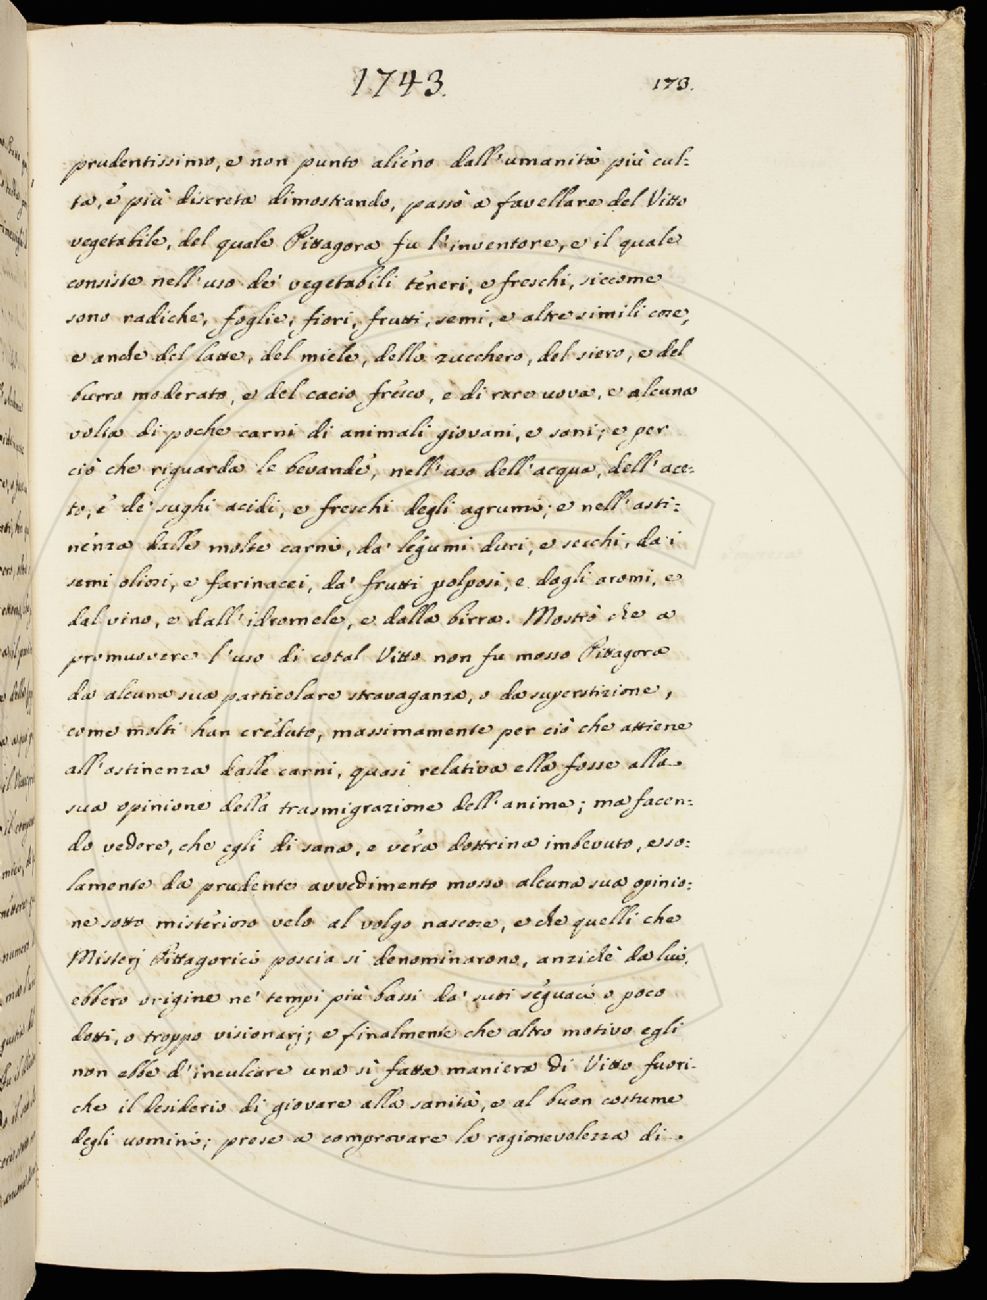 1743.
173.
prudentissimo, e non punto alieno dall'umanità più cul=
ta, e più discreta dimostrando, passò a favellare del Vitto
vegetabile, del quale Pittagora fu l'inventore, e il quale
consiste nell'uso de' vegetabili teneri, e freschi, siccome
sono radiche, foglie, fiori, frutti, semi, e altre simili cose,
e anche del latte, del miele, dello zucchero, del siero, e del
burro moderato, e del cacio fresco, e di rare uova, e alcuna
volta di poche carni di animali giovani, e sani; e per
ciò che riguarda le bevande, nell'uso dell'acqua, dell'ace=
to, e de' sughi acidi, e freschi degli agrumi; e nell'asti=
nenza dalle molte carni, da' legumi duri, e secchi, da i
semi oliosi, e farinacei, da' frutti polposi, e dagli aromi, e
dal vino, e dall'idromele, e dalla birra. Mostrò che a
promuovere l'uso di cotal Vitto non fu mosso Pittagora
da alcuna sua particolare stravaganza, o da superstizione,
come molti han creduto, massimamente per ciò che attiene
all'astinenza dalle carni, quasi relativa ella fosse alla
sua opinione della trasmigrazione dell'anime; ma facen=
do vedere, che egli di sana, e vera dottrina imbevuto, e so=
lamente da prudente avvedimento mosso alcuna sua opinio=
ne sotto misterioso velo al volgo nascose, e che quelli che
Misterj Pittagorici poscia si denominarono, anzichè da lui,
ebbero origine ne' tempi più bassi da' suoi seguaci o poco
dotti, o troppo visionarj; e finalmente che altro motivo egli
non ebbe d'inculcare una sì fatta maniera di Vitto fuori-
che il desiderio di giovare alla sanità, e al buon costume
degli uomini; prese a comprovare la ragionevolezza di